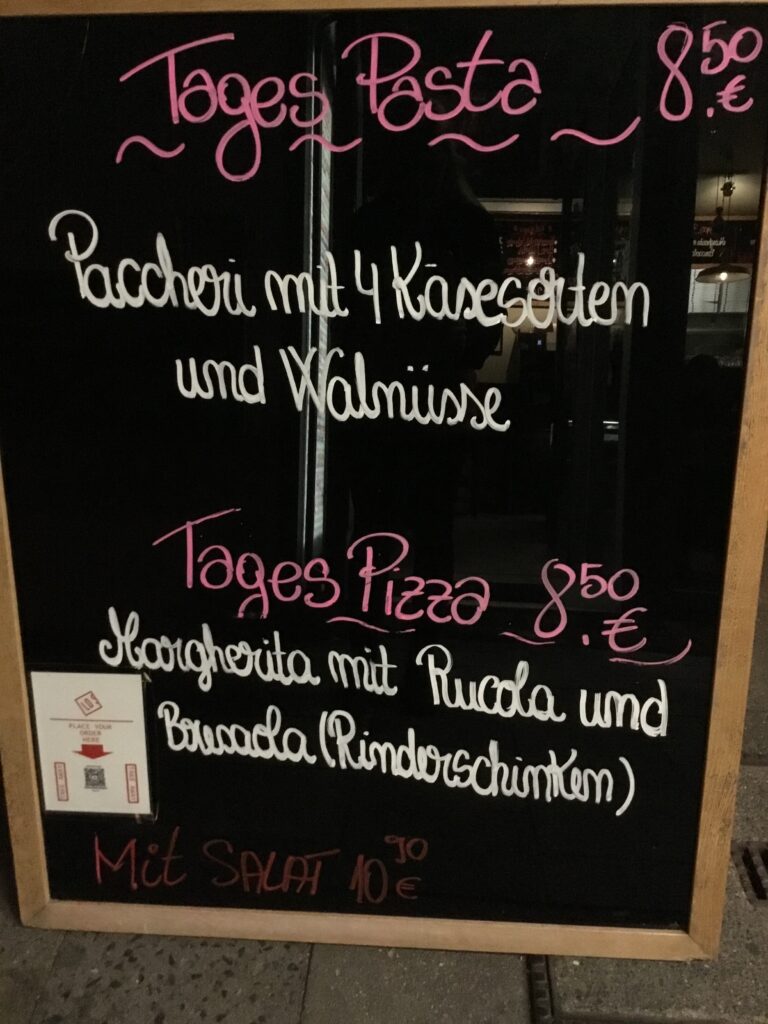 Tages Pasta 8.50 €
Paccheri mit 4 Käsesorten
und Walnüsse
Tages Pizza 8.50 €
Margherita mit Rucola und
Bresaola (Rinderschinken)
PLACE YOUR
ORDER
HERE
Mit SALAT 10 90 €